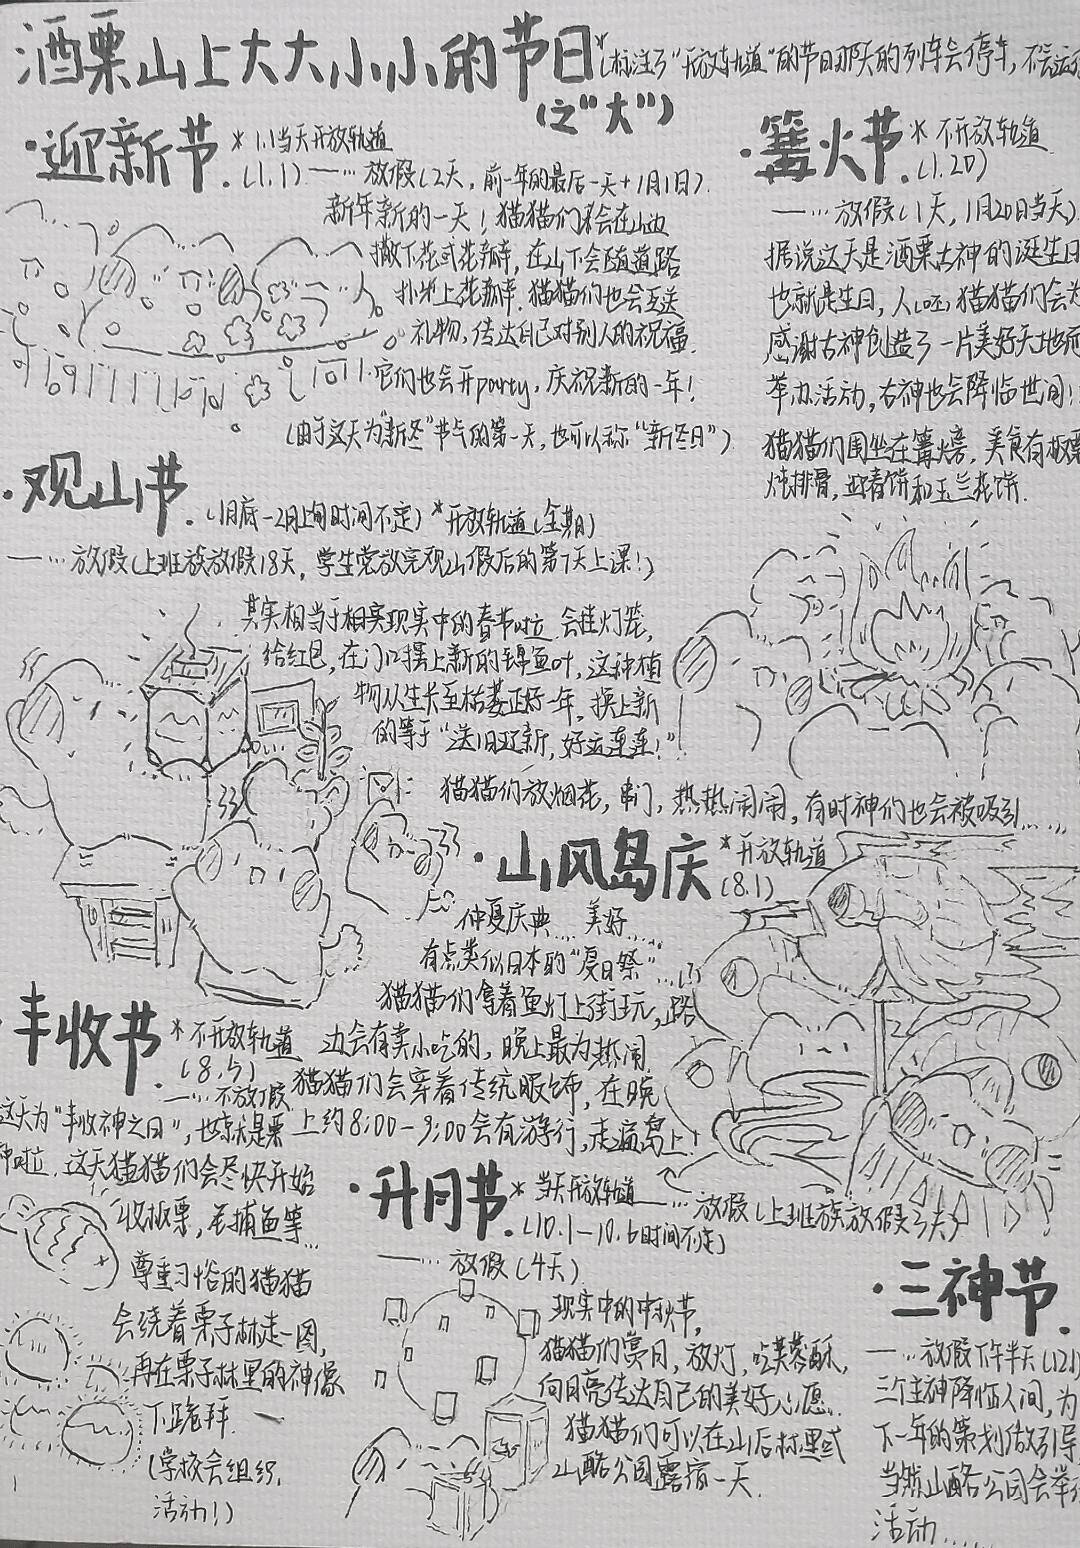 酒栗山上大大小小的节日
(之"大")
*(标注了"开放轨道"的节日那天的列车会停车,不会运
·迎新节
*1.1当天开放轨道
.(1.1)一…放假(2天,前一年的最后一天+1月1日)
新年新的一天!猫猫们会在山边
撒下花或花瓣,在山下会随道路
扑米上花瓣.猫猫们也会互送
礼物,传达自己对别人的祝福.
它们也会开party,庆祝新的一年!
(由于这天为"新冬"节气的第一天,也可以称"新冬日")
·篝火节
*不开放轨道
.(1.20)
一…放假(1天,1月20日当天)
据说这天是酒栗古神的诞生日
也就是生日,人(呸)猫猫们会为
感谢古神创造了一片美好天地而
举办活动,古神也会降临世间!
猫猫们围坐在篝火旁,美食有板栗
炖排骨,迎春饼和玉兰花饼.
·观山节
.(1月底-2月上旬时间不定)*开放轨道(全期)
一…放假(上班族放假18天,学生党放完观山假后的第7天上课!)
其实相当于相实现实中的春节啦.会挂灯笼,
给红包,在门口摆上新的锦鱼叶,这种植
物从生长至枯萎正好一年,换上新
的等于"送旧迎新,好运连连!"
猫猫们放烟花,串门,热热闹闹,有时神们也会被吸引……
·山风岛庆
*开放轨道
(8.1)
仲夏庆典……美好……
有点类似日本的"夏日祭"……
猫猫们拿着鱼灯上街玩,路
边会有卖小吃的,晚上最为热闹.
猫猫们会穿着传统服饰,在晚
上约8:00-9:00会有游行,走遍岛上!
一…放假(上班族放假3天)
·丰收节
*不开放轨道
.(8.5)
一…不放假
这天为"丰收神之日",也就是栗
神啦.这天猫猫们会尽快开始
收板栗,去捕鱼等…
尊重习俗的猫猫
会绕着栗子林走一圈,
再在栗子林里的神像
下跪拜.
(学校会组织
活动!)
·升月节
*当天开放轨道
.(10.1-10.6时间不定)
一…放假(4天)
现实中的中秋节,
猫猫们赏月,放灯,吃芙蓉酥,
向月亮传达自己的美好心愿.
猫猫们可以在山后林里或
山酪公园露宿一天.
·三神节.
一…放假下午半天(12.
三个主神降临人间,为
下一年的策划做引导
当然山酪公园会举行
活动……